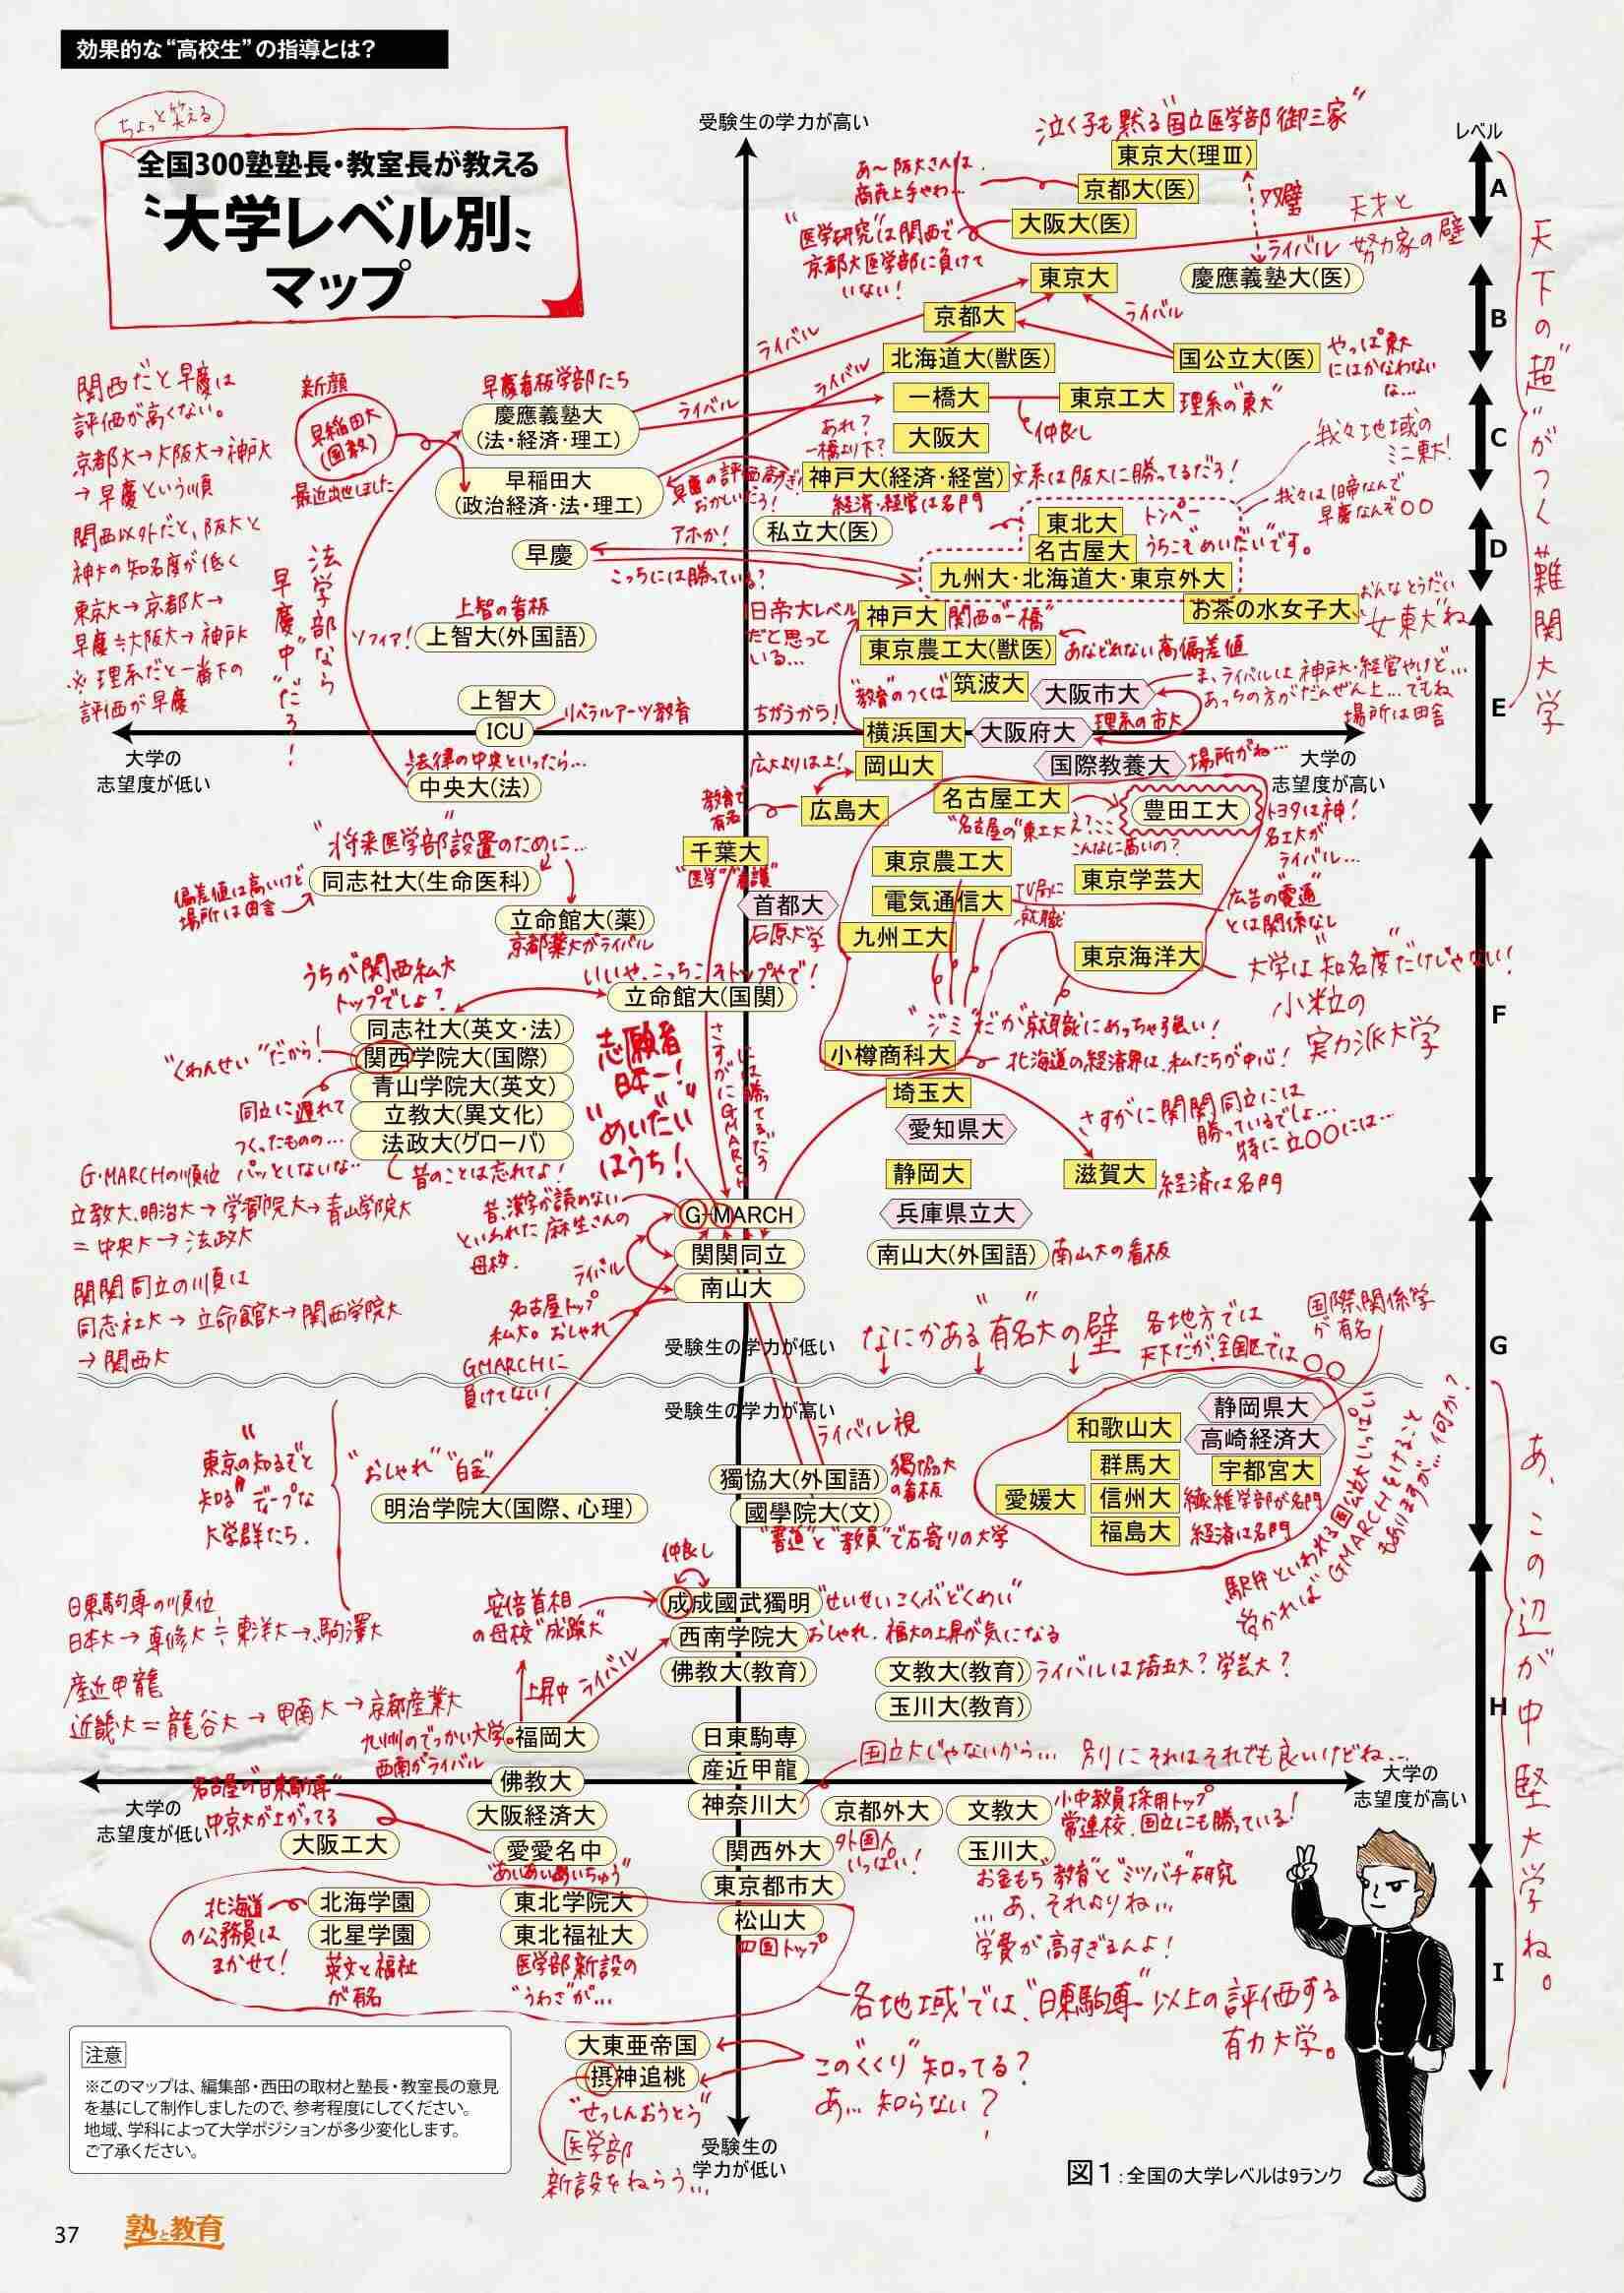 効果的な“高校生”の指導とは?
ちょっと笑える
全国300塾塾長・教室長が教える
〝大学レベル別〟
マップ
受験生の学力が高い
レベル
A
B
C
D
E
F
G
H
I
泣く子も黙る“国立医学部御三家”
東京大(理Ⅲ)
京都大(医)
大阪大(医)
あ〜阪大さんは、
商売上手やわ…
“医学研究”は関西で
京都大医学部に負けて
いない!
双璧
ライバル
天才と
努力家の壁
天下の“超”がつく難関大学
東京大
慶應義塾大(医)
京都大
ライバル
ライバル
北海道大(獣医)
国公立大(医)
やっぱ東大
にはかなわない
な…
ライバル
ライバル
一橋大
東京工大
理系の“東大”
仲良し
あれ?
一橋より下?
大阪大
我々地域の
ミニ東大!
神戸大(経済・経営)
文系は阪大に勝ってるだろ!
経済・経営は名門
我々は旧帝なんで
早慶なんぞ〇〇
関西だと早慶は
評価が高くない。
京都大→大阪大→神戸大
→早慶という順
関西以外だと、阪大と
神大の知名度が低く
東京大→京都大→
早慶≒大阪大→神戸大
※理系だと一番下の
評価が早慶
新顔
早稲田大
(国教)
最近出世しました
早慶看板学部たち
慶應義塾大
(法・経済・理工)
早稲田大
(政治経済・法・理工)
早慶の評価高すぎ!
おかしいだろ!
私立大(医)
東北大
トンペー
名古屋大
うちこそめいだいです。
九州大・北海道大・東京外大
早慶
アホか!
こっちには勝っている?
法学部なら
“早慶中”だろ!
お茶の水女子大
おんなとうだい
“女東大”ね
上智の看板
ソフィア!
上智大(外国語)
旧帝大レベル
だと思って
いる…
神戸大
関西の“一橋”
東京農工大(獣医)
あなどれない高偏差値
“教育”のつくば
筑波大
大阪市大
ま、ライバルは神戸大・経営やけど…
あっちの方がだんぜん上…でもね
場所は田舎
上智大
ICU
リベラルアーツ教育
ちがうから!
横浜国大
大阪府大
理系の市大
大学の
志望度が低い
大学の
志望度が高い
法律の中央といったら…
中央大(法)
広大よりは上!
岡山大
国際教養大
場所がね…
教育で
有名
広島大
名古屋工大
“名古屋の”東工大
え?ここ
こんなに高いの?
豊田工大
トヨタは神!
名工大が
ライバル…
千葉大
“医学”“看護”
“将来医学部設置のために…”
同志社大(生命医科)
偏差値は高いけど
場所は田舎
立命館大(薬)
京都薬大がライバル
首都大
石原大学
東京農工大
東京学芸大
電気通信大
TV局に
就職
広告の“電通”
とは関係なし
九州工大
東京海洋大
大学は“知名度”だけじゃない!
小粒の
実力派大学
うちが関西私大
トップでしょ?
いいや、こっちこそトップやで!
立命館大(国関)
同志社大(英文・法)
“くわんせい”だから!
関西学院大(国際)
青山学院大(英文)
立教大(異文化)
法政大(グローバ)
同立に遅れて
つくったものの…
パッとしないな…
昔のことは忘れてよ!
志願者
日本一!
“めいだい”
はうち!
さすがにG・MARCH
には勝ってるだろ
“ジミ”だが就職にめっちゃ強い!
小樽商科大
北海道の経済界は、私たちが中心!
埼玉大
愛知県大
静岡大
滋賀大
経済は名門
さすがに関関同立には
勝っているでしょ…
特に立〇〇には…
兵庫県立大
南山大(外国語)
南山大の看板
G・MARCHの順位
立教大、明治大→学習院大→青山学院大
=中央大→法政大
関関同立の順は
同志社大→立命館大→関西学院大
→関西大
昔、漢字が読めない
といわれた麻生さんの
母校。
G-MARCH
関関同立
南山大
ライバル
名古屋トップ
私大。おしゃれ
GMARCHに
負けてない!
受験生の学力が低い
なにかある“有名大の壁”
各地方では
天下だが、全国区では〇〇
国際関係学
が有名
受験生の学力が高い
“東京の知るぞと
知る”ディープな
大学群たち。
“おしゃれ”“白金”
明治学院大(国際、心理)
ライバル視
獨協大(外国語)
獨協大
の看板
國學院大(文)
“書道”と“教員”で右寄りの大学
静岡県大
和歌山大
高崎経済大
群馬大
宇都宮大
愛媛大
信州大
繊維学部が名門
福島大
経済は名門
駅弁といわれる国公立大いっぱい
受かればGMARCHをけること
もありますが…何か?
あ、この辺が中堅大学ね。
日東駒専の順位
日本大→専修大≒東洋大→駒澤大
産近甲龍
近畿大=龍谷大→甲南大→京都産業大
仲良し
安倍首相
の母校“成蹊大”
成成國武獨明
“せいせいこくぶどくめい”
西南学院大
おしゃれ、福大の上昇が気になる
佛教大(教育)
文教大(教育)
ライバルは埼玉大?学芸大?
玉川大(教育)
上昇中
ライバル
九州のでっかい大学。
西南がライバル
福岡大
日東駒専
産近甲龍
国立大じゃないから… 別にそれはそれでも良いけどね…
佛教大
神奈川大
京都外大
文教大
小中教員採用トップ
常連校、国立にも勝っている!
大学の
志望度が低い
大学の
志望度が高い
名古屋の“日東駒専”
中京大が上がってる
大阪経済大
大阪工大
愛愛名中
“あいあいめいちゅう”
関西外大
外国人
いっぱい!
玉川大
お金もち“教育”と“ミツバチ”研究
…あ、それよりね…
学費が高すぎるんよ!
東京都市大
北海道
の公務員は
まかせて!
北海学園
北星学園
英文と福祉
が有名
東北学院大
東北福祉大
医学部新設の
“うわさ”が…
松山大
四国トップ
各地域では、“日東駒専”以上の評価する
有力大学。
大東亜帝国
摂神追桃
“せっしんおうとう”
医学部
新設をねらう…
この“くくり”知ってる?
あ…知らない?
受験生の
学力が低い
注意
※このマップは、編集部・西田の取材と塾長・教室長の意見
を基にして制作しましたので、参考程度にしてください。
地域、学科によって大学ポジションが多少変化します。
ご了承ください。
図1:全国の大学レベルは9ランク
37
塾と教育